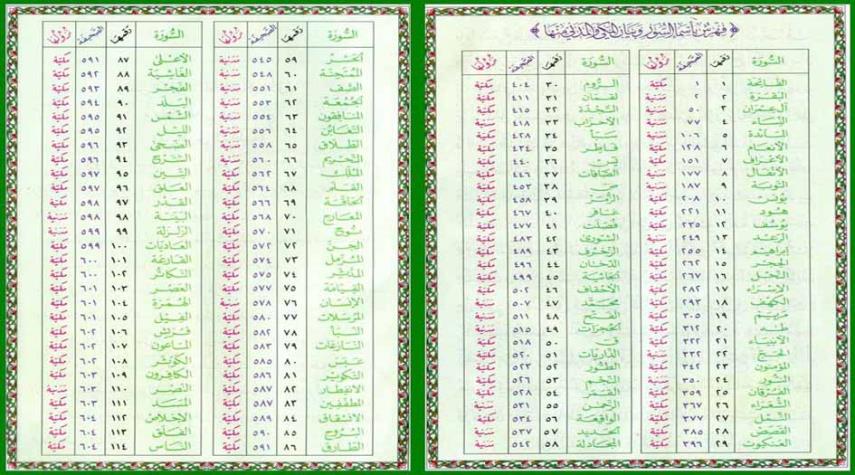 فهرس بأسماء السور وبيان المكي والمدني منها
السورة رقمها الصحيفة نزولها
الفاتحة ١ ١ مكية
البقرة ٢ ٢ مدنية
آل عمران ٣ ٥٠ مدنية
النساء ٤ ٧٧ مدنية
المائدة ٥ ١٠٦ مدنية
الأنعام ٦ ١٢٨ مكية
الأعراف ٧ ١٥١ مكية
الأنفال ٨ ١٧٧ مدنية
التوبة ٩ ١٨٧ مدنية
يونس ١٠ ٢٠٨ مكية
هود ١١ ٢٢١ مكية
يوسف ١٢ ٢٣٥ مكية
الرعد ١٣ ٢٤٩ مدنية
إبراهيم ١٤ ٢٥٥ مكية
الحجر ١٥ ٢٦٢ مكية
النحل ١٦ ٢٦٧ مكية
الإسراء ١٧ ٢٨٢ مكية
الكهف ١٨ ٢٩٣ مكية
مريم ١٩ ٣٠٥ مكية
طه ٢٠ ٣١٢ مكية
الأنبياء ٢١ ٣٢٢ مكية
الحج ٢٢ ٣٣٢ مدنية
المؤمنون ٢٣ ٣٤٢ مكية
النور ٢٤ ٣٥٠ مدنية
الفرقان ٢٥ ٣٥٩ مكية
الشعراء ٢٦ ٣٦٧ مكية
النمل ٢٧ ٣٧٧ مكية
القصص ٢٨ ٣٨٥ مكية
العنكبوت ٢٩ ٣٩٦ مكية
السورة رقمها الصحيفة نزولها
الروم ٣٠ ٤٠٤ مكية
لقمان ٣١ ٤١١ مكية
السجدة ٣٢ ٤١٥ مكية
الأحزاب ٣٣ ٤١٨ مدنية
سبأ ٣٤ ٤٢٨ مكية
فاطر ٣٥ ٤٣٤ مكية
يس ٣٦ ٤٤٠ مكية
الصافات ٣٧ ٤٤٦ مكية
ص ٣٨ ٤٥٣ مكية
الزمر ٣٩ ٤٥٨ مكية
غافر ٤٠ ٤٦٧ مكية
فصلت ٤١ ٤٧٧ مكية
الشورى ٤٢ ٤٨٣ مكية
الزخرف ٤٣ ٤٨٩ مكية
الدخان ٤٤ ٤٩٦ مكية
الجاثية ٤٥ ٤٩٩ مكية
الأحقاف ٤٦ ٥٠٢ مكية
محمد ٤٧ ٥٠٧ مدنية
الفتح ٤٨ ٥١١ مدنية
الحجرات ٤٩ ٥١٥ مدنية
ق ٥٠ ٥١٨ مكية
الذاريات ٥١ ٥٢٠ مكية
الطور ٥٢ ٥٢٣ مكية
النجم ٥٣ ٥٢٦ مكية
القمر ٥٤ ٥٢٨ مكية
الرحمن ٥٥ ٥٣١ مدنية
الواقعة ٥٦ ٥٣٤ مكية
الحديد ٥٧ ٥٣٧ مدنية
المجادلة ٥٨ ٥٤٢ مدنية
السورة رقمها الصحيفة نزولها
الحشر ٥٩ ٥٤٥ مدنية
الممتحنة ٦٠ ٥٤٩ مدنية
الصف ٦١ ٥٥١ مدنية
الجمعة ٦٢ ٥٥٣ مدنية
المنافقون ٦٣ ٥٥٤ مدنية
التغابن ٦٤ ٥٥٦ مدنية
الطلاق ٦٥ ٥٥٨ مدنية
التحريم ٦٦ ٥٦٠ مدنية
الملك ٦٧ ٥٦٢ مكية
القلم ٦٨ ٥٦٤ مكية
الحاقة ٦٩ ٥٦٦ مكية
المعارج ٧٠ ٥٦٨ مكية
نوح ٧١ ٥٧٠ مكية
الجن ٧٢ ٥٧٢ مكية
المزمل ٧٣ ٥٧٤ مكية
المدثر ٧٤ ٥٧٥ مكية
القيامة ٧٥ ٥٧٧ مكية
الإنسان ٧٦ ٥٧٨ مدنية
المرسلات ٧٧ ٥٨٠ مكية
النبأ ٧٨ ٥٨٢ مكية
النازعات ٧٩ ٥٨٣ مكية
عبس ٨٠ ٥٨٥ مكية
التكوير ٨١ ٥٨٦ مكية
الانفطار ٨٢ ٥٨٧ مكية
المطففين ٨٣ ٥٨٧ مكية
الانشقاق ٨٤ ٥٨٩ مكية
البروج ٨٥ ٥٩٠ مكية
الطارق ٨٦ ٥٩١ مكية
السورة رقمها الصحيفة نزولها
الأعلى ٨٧ ٥٩١ مكية
الغاشية ٨٨ ٥٩٢ مكية
الفجر ٨٩ ٥٩٣ مكية
البلد ٩٠ ٥٩٤ مكية
الشمس ٩١ ٥٩٥ مكية
الليل ٩٢ ٥٩٥ مكية
الضحى ٩٣ ٥٩٦ مكية
الشرح ٩٤ ٥٩٦ مكية
التين ٩٥ ٥٩٧ مكية
العلق ٩٦ ٥٩٧ مكية
القدر ٩٧ ٥٩٨ مكية
البينة ٩٨ ٥٩٨ مدنية
الزلزلة ٩٩ ٥٩٩ مدنية
العاديات ١٠٠ ٥٩٩ مكية
القارعة ١٠١ ٦٠٠ مكية
التكاثر ١٠٢ ٦٠٠ مكية
العصر ١٠٣ ٦٠١ مكية
الهمزة ١٠٤ ٦٠١ مكية
الفيل ١٠٥ ٦٠١ مكية
قريش ١٠٦ ٦٠٢ مكية
الماعون ١٠٧ ٦٠٢ مكية
الكوثر ١٠٨ ٦٠٢ مكية
الكافرون ١٠٩ ٦٠٣ مكية
النصر ١١٠ ٦٠٣ مدنية
المسد ١١١ ٦٠٣ مكية
الإخلاص ١١٢ ٦٠٤ مكية
الفلق ١١٣ ٦٠٤ مكية
الناس ١١٤ ٦٠٤ مكية